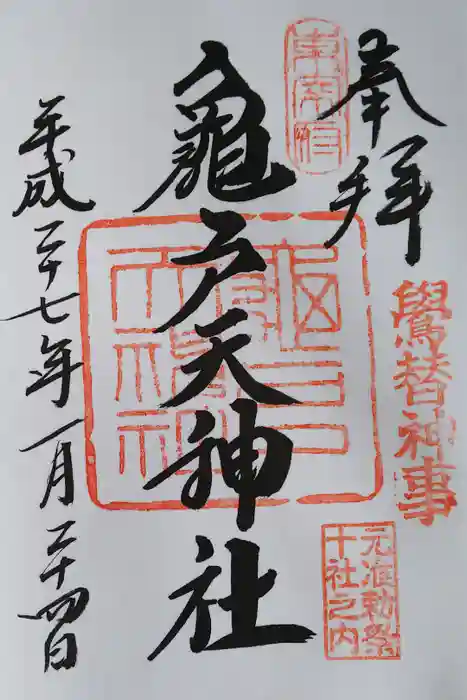 奉拝
鷽替神事
元准勅祭
十社之内
東宰府
亀戸天神社
平成二十七年一月二十四日